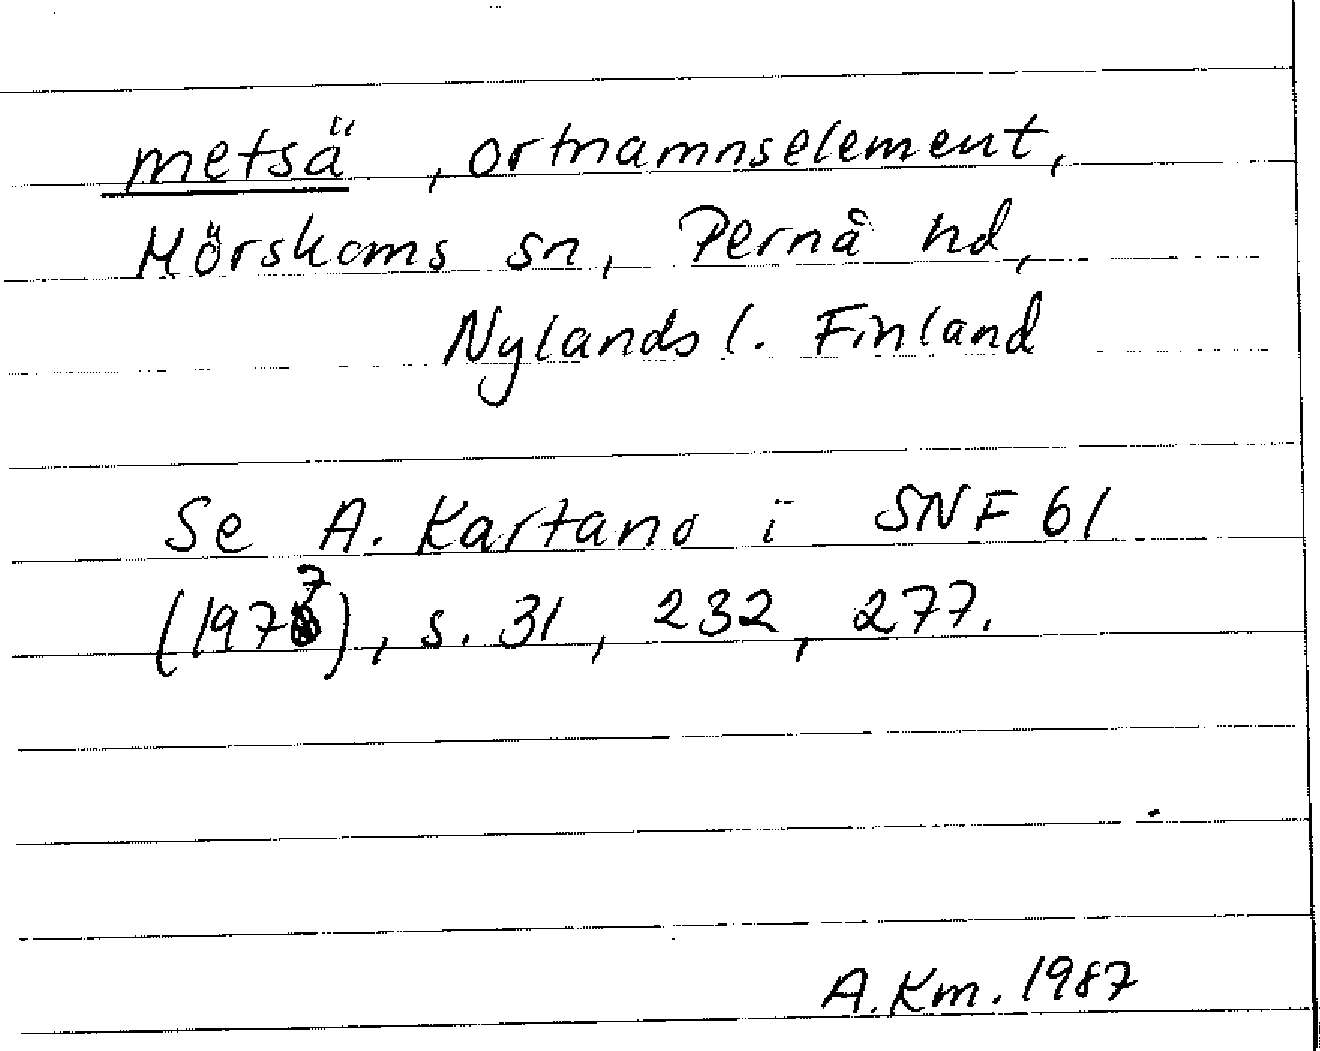 metsä, ortnamnselement,
Mörskoms sn, Pernå hd,
Nylands l. Finland
Se A. Kartano i SNF 61
(1977), s. 31, 232, 277.
A.Km. 1987